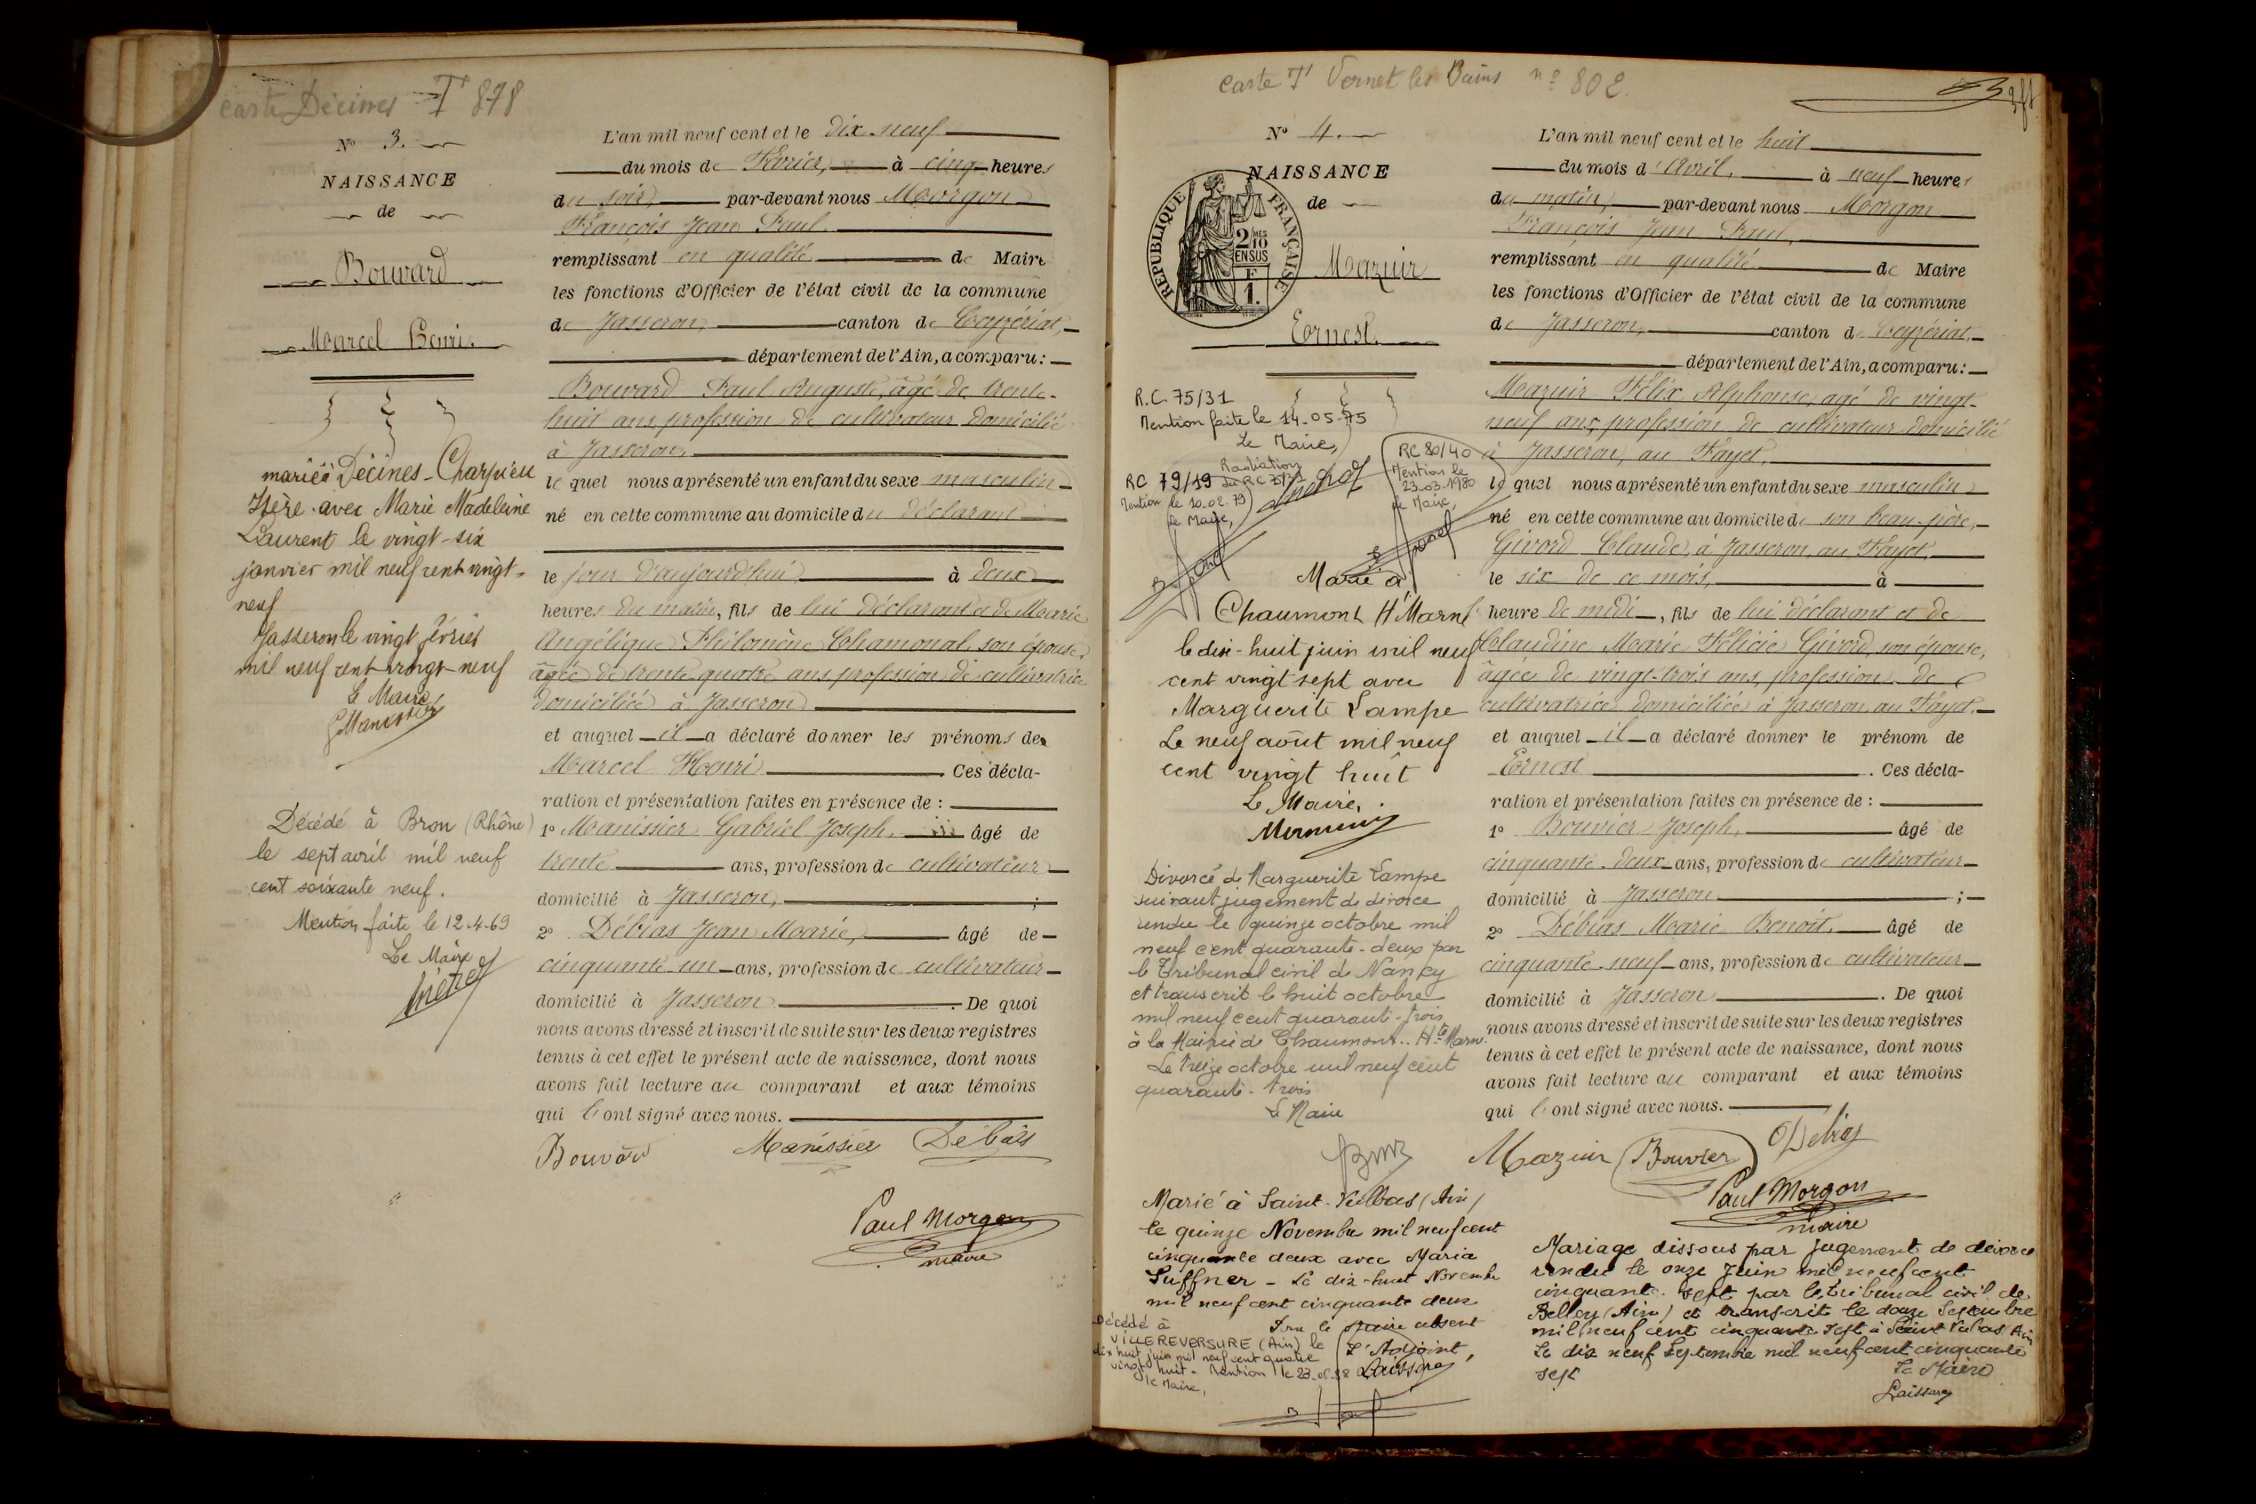 Carte Décines T 878
N° 3.
NAISSANCE
de
Bouvard
Marcel Henri.
marié à Décines-Charpieu
Isère avec Marie Madeleine
Laurent le vingt-six
janvier mil neuf cent vingt-
neuf
Jasseron le vingt février
mil neuf cent vingt-neuf
Le Maire
GManissier
Décédé à Bron (Rhône)
le sept avril mil neuf
cent soixante neuf.
Mention faite le 12-4-69
Le Maire
L'an mil neuf cent et le dix-neuf
du mois de Février, à cinq heures
du soir, par-devant nous Morgon
François Jean Paul.
remplissant en qualité de Maire
les fonctions d'Officier de l'état civil de la commune
de Jasseron, canton de Ceyzériat,
département de l'Ain, a comparu:
Bouvard Paul Auguste, âgé de trente-
huit ans profession de cultivateur domicilié
à Jasseron,
le quel nous a présenté un enfant du sexe masculin
né en cette commune au domicile du déclarant
le jour d'aujourd'hui à deux
heures du matin, fils de lui déclarant et de Marie
Angélique Philomène Chamonal, son épouse,
âgée de trente-quatre ans profession de cultivatrice
domiciliée à Jasseron
et auquel il a déclaré donner les prénoms de
Marcel Henri Ces décla-
ration et présentation faites en présence de :
1° Manissier Gabriel Joseph, âgé de
trente ans, profession de cultivateur
domicilié à Jasseron, ;
2° Débias Jean Marie, âgé de
cinquante-un ans, profession de cultivateur
domicilié à Jasseron . De quoi
nous avons dressé et inscrit de suite sur les deux registres
tenus à cet effet le présent acte de naissance, dont nous
avons fait lecture au comparant et aux témoins
qui l'ont signé avec nous.
Bouvard Manissier Débias
Paul Morgon
maire
Carte T Vernet les Bains n° 802.
N° 4.
NAISSANCE
de
RÉPUBLIQUE FRANÇAISE
2/10 EN SUS
F
1.
Mazuir
Ernest.
R.C. 75/31
Mention faite le 14-05-75
Le Maire,
RC 79/19 Radiation
du RC 75/31
Mention le 20.02.79
Le Maire,
RC 80/40
Mention le
23.03.1980
Le Maire,
Marié à
Chaumont Hte Marne
le dix-huit juin mil neuf
cent vingt sept avec
Marguerite Lampe
Le neuf août mil neuf
cent vingt huit
Le Maire,
Divorcé de Marguerite Lampe
suivant jugement de divorce
rendu le quinze octobre mil
neuf cent quarante-deux par
le Tribunal civil de Nancy
et transcrit le huit octobre
mil neuf cent quarante-trois
à la Mairie de Chaumont. Hte Marne.
Le treize octobre mil neuf cent
quarante-trois
Le Maire
Marié à Saint-Vulbas (Ain)
le quinze Novembre mil neuf cent
cinquante deux avec Maria
Suffner - Le dix-huit Novembre
mil neuf cent cinquante deux
Pour le Maire absent
L'Adjoint,
Décédé à
VILLEREVERSURE (Ain) le
dix huit juin mil neuf cent quatre
vingt huit. Mention le 23-06-88
le Maire,
L'an mil neuf cent et le huit
du mois d'Avril, à neuf heures
du matin, par-devant nous Morgon
François Jean Paul,
remplissant en qualité de Maire
les fonctions d'Officier de l'état civil de la commune
de Jasseron, canton de Ceyzériat,
département de l'Ain, a comparu:
Mazuir Félix Alphonse, âgé de vingt-
neuf ans, profession de cultivateur domicilié
à Jasseron, au Fayet,
le quel nous a présenté un enfant du sexe masculin
né en cette commune au domicile de son beau-père,
Givord Claude, à Jasseron au Fayet,
le six de ce mois, à
heure de midi, fils de lui déclarant et de
Claudine Marie Félicie Givord, son épouse,
âgée de vingt-trois ans, profession de
cultivatrice domiciliée à Jasseron au Fayet.
et auquel il a déclaré donner le prénom de
Ernest . Ces décla-
ration et présentation faites en présence de :
1° Bouvier Joseph, âgé de
cinquante-deux ans, profession de cultivateur
domicilié à Jasseron ;
2° Débias Marie Benoît, âgé de
cinquante-neuf ans, profession de cultivateur
domicilié à Jasseron . De quoi
nous avons dressé et inscrit de suite sur les deux registres
tenus à cet effet le présent acte de naissance, dont nous
avons fait lecture au comparant et aux témoins
qui l'ont signé avec nous.
Mazuir Bouvier Debias
Paul Morgon
maire
Mariage dissous par jugement de divorce
rendu le onze Juin mil neuf cent
cinquante-sept par le tribunal civil de
Belley (Ain) et transcrit le douze Septembre
mil neuf cent cinquante sept à Saint Vulbas Ain
Le dix neuf Septembre mil neuf cent cinquante
sept
Le Maire